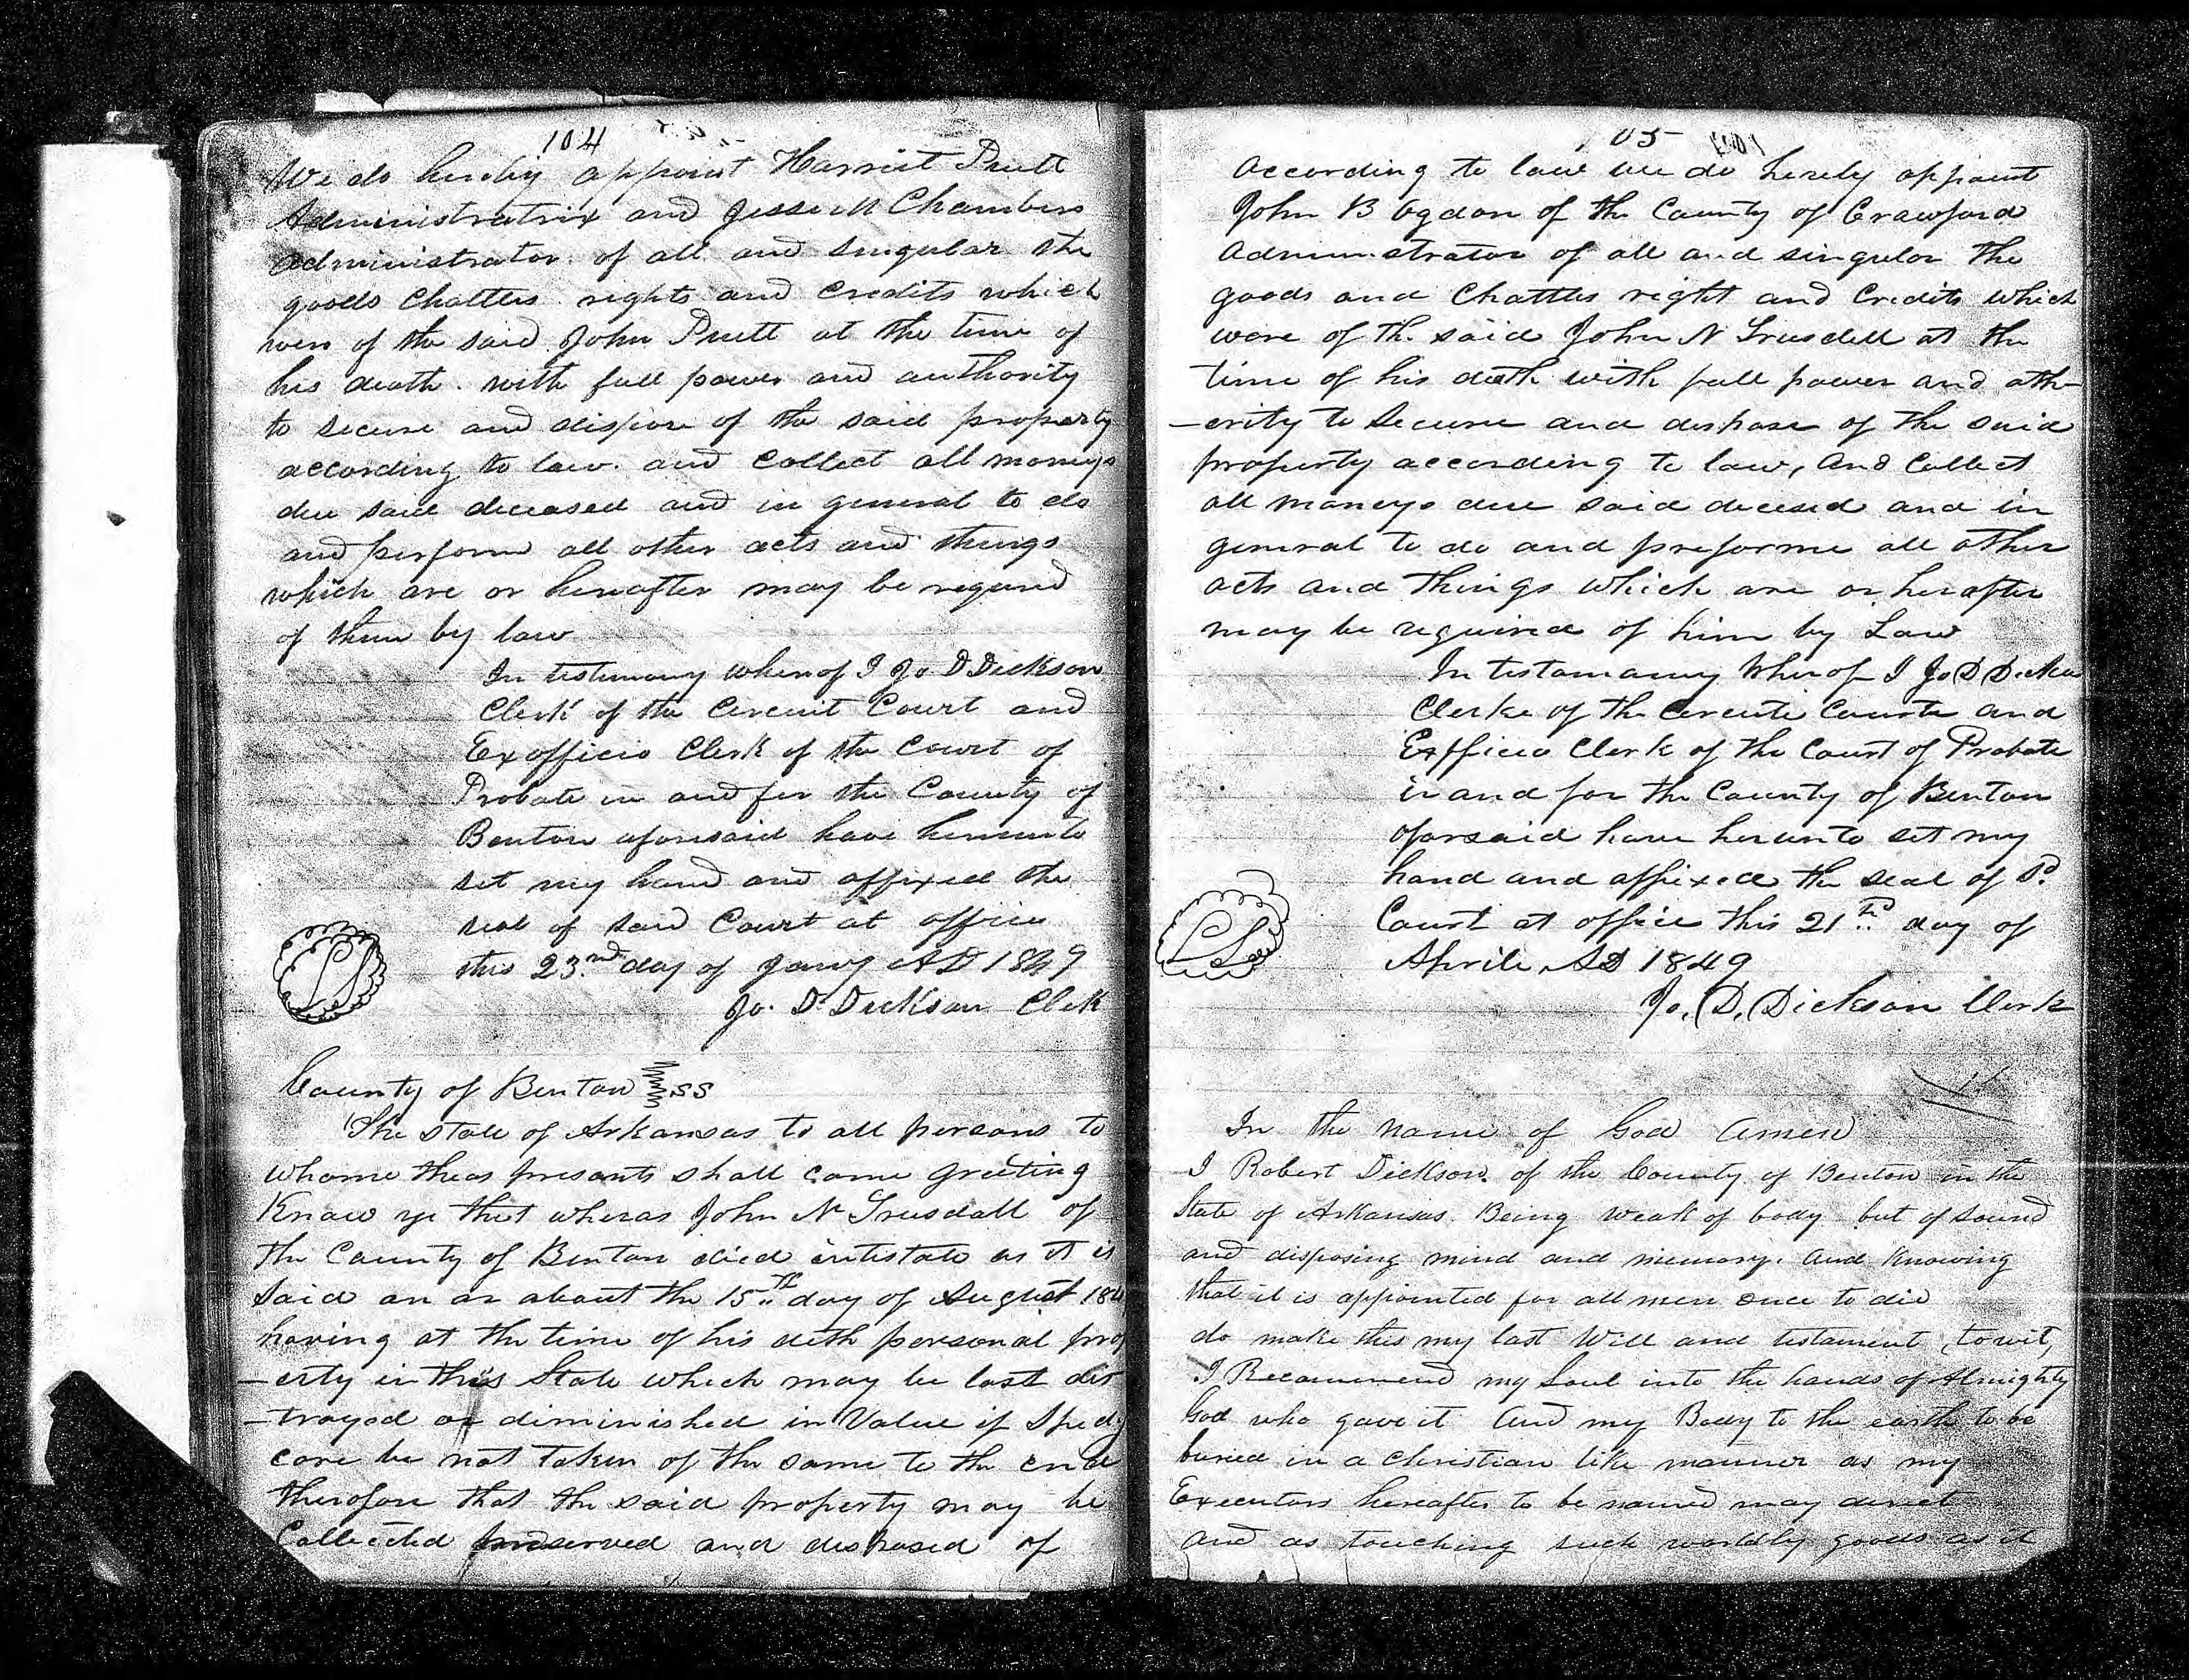 104
We do hereby appoint Harriet Pruett
Administratrix and Jesse M Chambers
Administrator of all and singular the
goods Chattles rights and Credits which
were of the said John Pruett at the time of
his death. with full power and authority
to secure and dispose of the said property
according to law. and Collect all moneys
due said deceased and in general to do
and perform all other acts and things
which are or hereafter may be required
of them by law
In testimony whereof I Jo. D Dickson
Clerk of the Circuit Court and
Exofficio Clerk of the Court of
Probate in and for the County of
Benton aforesaid have hereunto
set my hand and affixed the
seal of said Court at office
this 23nd day of Jany AD 1849
LS
Jo. D. Dickson Clerk
County of Benton ss
The state of Arkansas to all persons to
whome theas presants shall come greeting
Know ye that wheras John N Trusdall of
the County of Benton died intestate as it is
Said on or about the 15th day of August 184
having at the time of his deth personal prop
-erty in this State which may be lost des
-troyed or diminished in Value if Speedy
care be not taken of the same to the end
therofore that the said property may be
Collected preserved and disposed of
105
according to law we do herely appoint
John B Ogdon of the County of Crawford
Administrator of all and singular the
goods and Chattles right and Credits which
were of th. said John N Trusdell at the
time of his death with full power and ath-
-erity to Secure and dispose of the said
property according to law, And Collect
all moneys due said decesed and in
general to do and preforme all other
acts and things which are or herafter
may be required of him by Law
In testamany Wherof I Jo D Dickson
Clerke of the Cercute Courte and
Exfficio Clerk of the Court of Probate
in and for the County of Benton
aforsaid have herunto set my
hand and affixed the seal of Sd
Court at office this 21th day of
Aprile AD 1849
LS
Jo. D. Dickson Clerk
In the name of God Amen
I Robert Dickson of the County of Benton in the
State of Arkansas. Being weak of body but of sound
and disposing mind and memory. And Knowing
that it is appointed for all men once to die
do make this my last Will and testament, towit,
I Recommend my Soul into the hands of Almighty
God who gave it And my Body to the earth to be
buried in a Christian like manner as my
Executors hereafter to be named may direct
and as touching such worldly goods as it